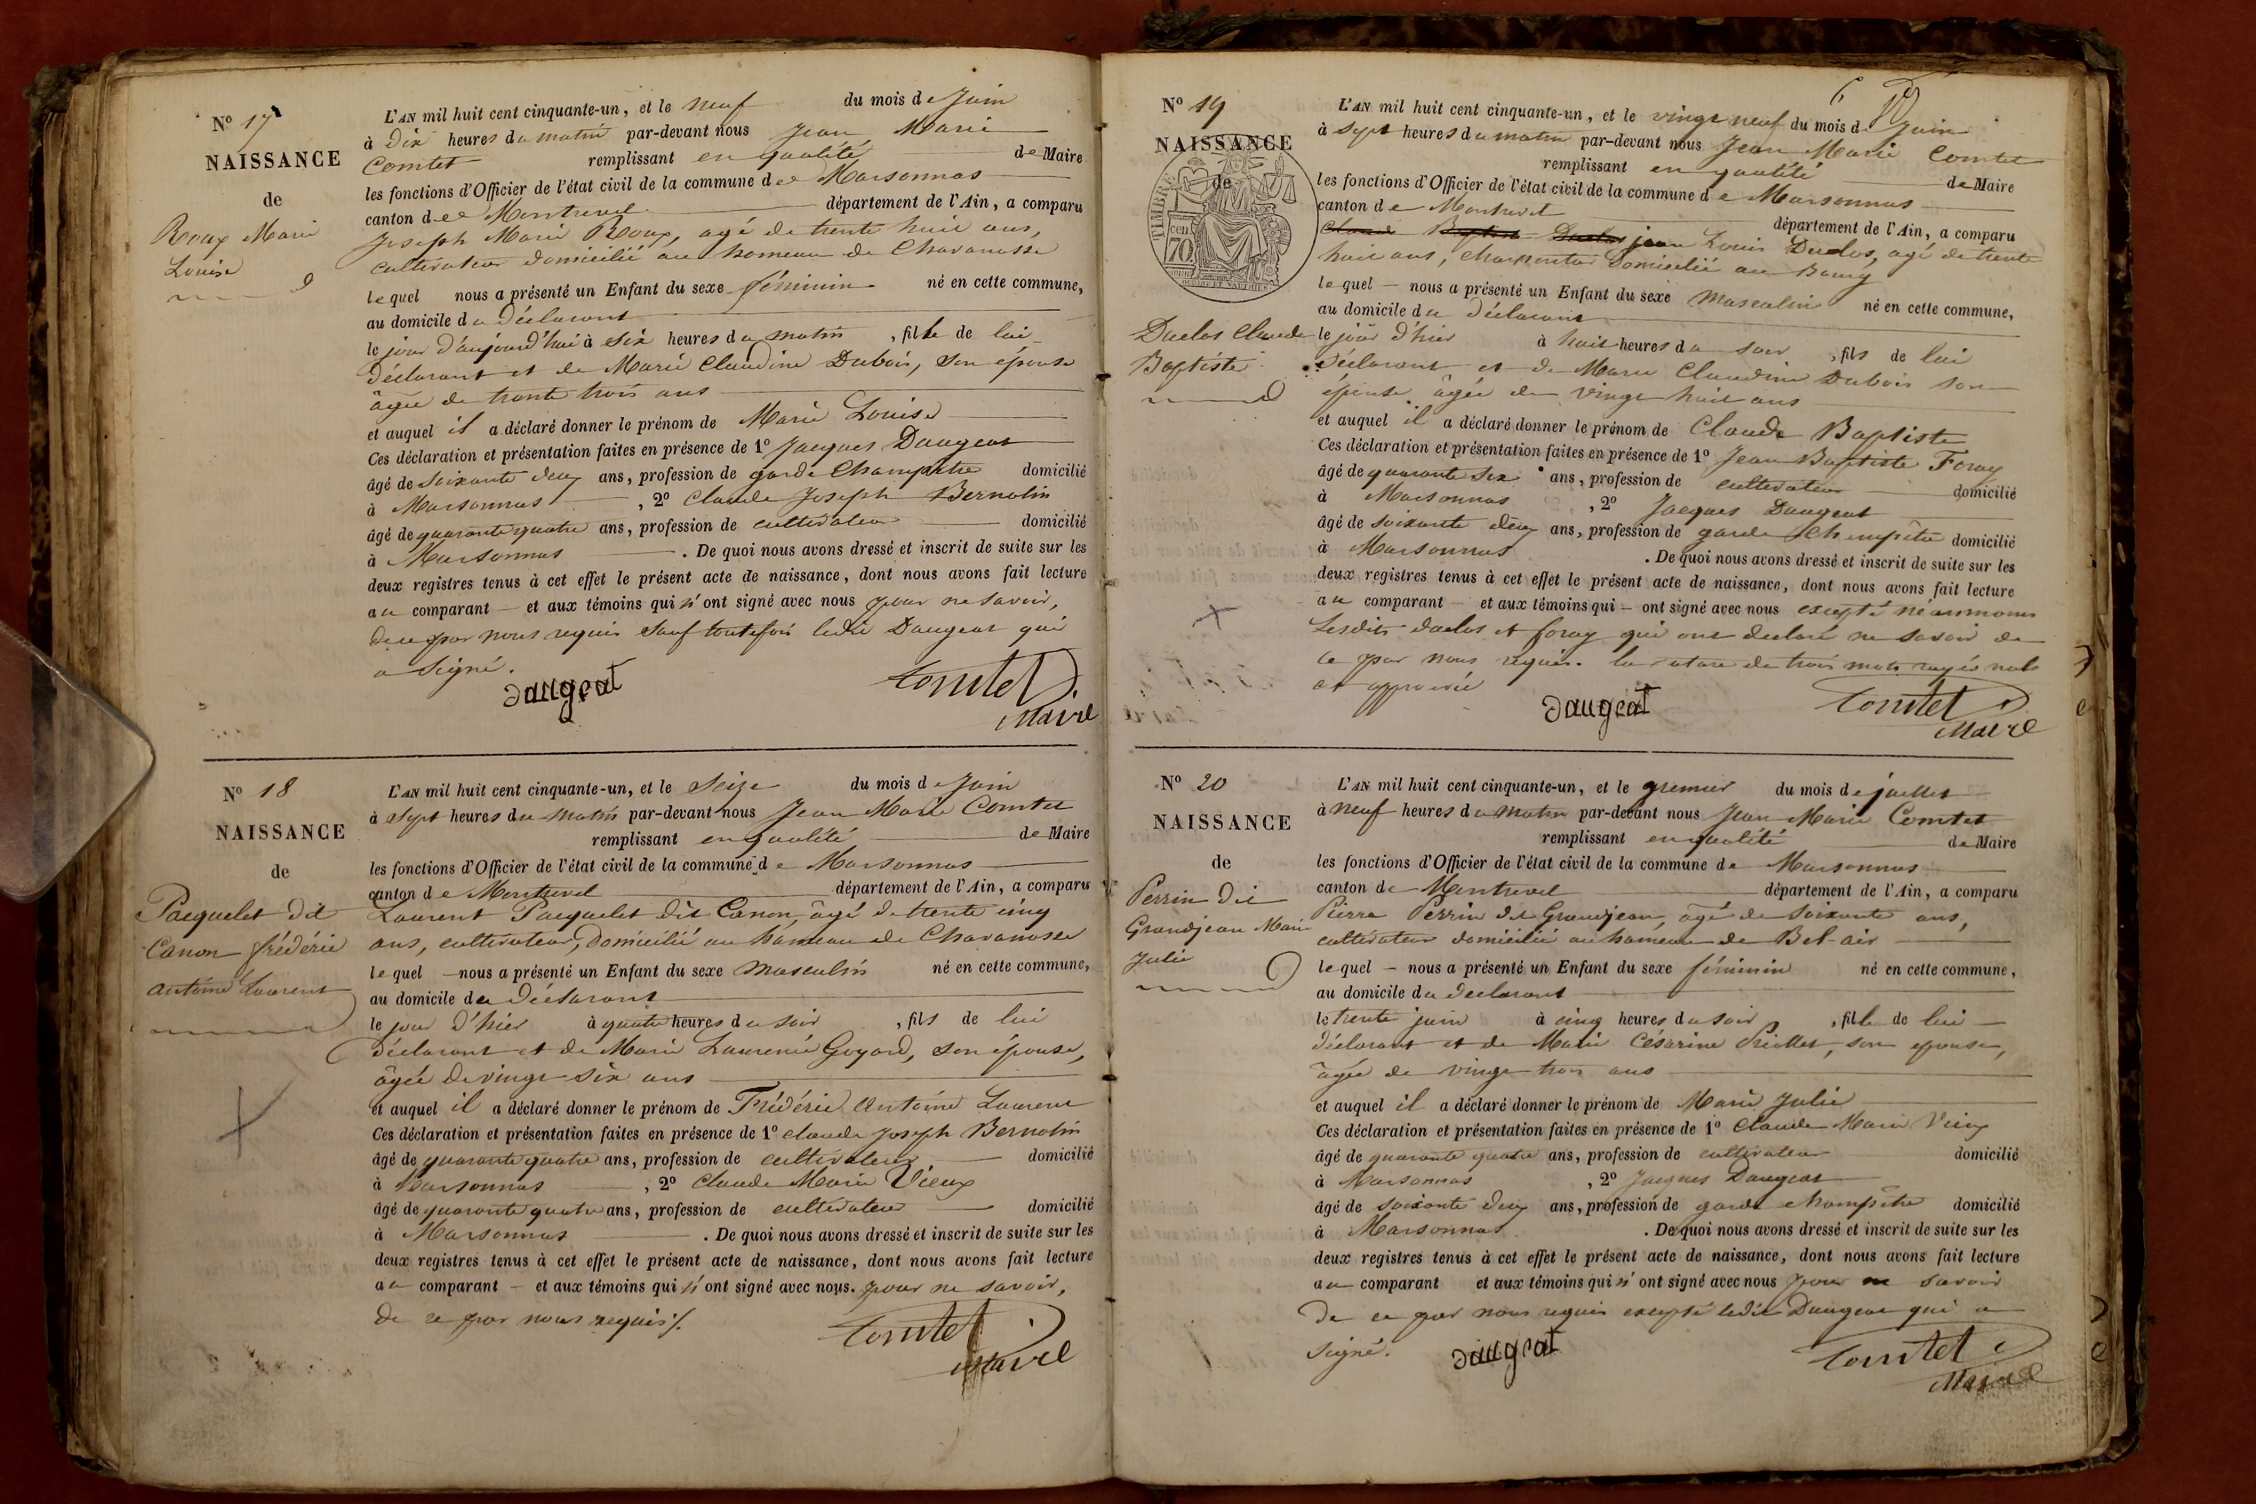 N° 17
NAISSANCE
de
Roux Marie
Louise
L'AN mil huit cent cinquante-un, et le neuf du mois de Juin
à dix heures du matin par-devant nous Jean Marie
Comtet remplissant en qualité de Maire
les fonctions d'Officier de l'état civil de la commune de Marsonnas
canton de Montrevel département de l'Ain, a comparu
Joseph Marie Roux, agé de trente huit ans,
cultivateur domicilié au hameau de Chavanosse
lequel nous a présenté un Enfant du sexe féminin né en cette commune,
au domicile du déclarant
le jour d'aujourd'hui à six heures du matin, fille de lui
déclarant et de Marie Claudine Dubois, son épouse
âgée de trente trois ans
et auquel il a déclaré donner le prénom de Marie Louise
Ces déclaration et présentation faites en présence de 1° Jacques Daugeat
âgé de soixante deux ans, profession de garde champêtre domicilié
à Marsonnas, 2° Claude Joseph Bernolin
âgé de quarante quatre ans, profession de cultivateur domicilié
à Marsonnas. De quoi nous avons dressé et inscrit de suite sur les
deux registres tenus à cet effet le présent acte de naissance, dont nous avons fait lecture
au comparant et aux témoins qui n'ont signé avec nous pour ne savoir,
de ce par nous requis sauf toutefois ledit Daugeat qui
a signé.
Daugeat Comtet
Maire
N° 18
NAISSANCE
de
Pacquelet dit
Canon frédéric
antoine Laurent
L'AN mil huit cent cinquante-un, et le seize du mois de Juin
à sept heures du matin par-devant nous Jean Marie Comtet
remplissant en qualité de Maire
les fonctions d'Officier de l'état civil de la commune de Marsonnas
canton de Montrevel département de l'Ain, a comparu
Laurent Pacquelet dit Canon, âgé de trente cinq
ans, cultivateur, domicilié au hameau de Chavanosse
lequel nous a présenté un Enfant du sexe masculin né en cette commune,
au domicile du déclarant
le jour d'hier à quatre heures du soir, fils de lui
déclarant et de Marie Laurence Goyard, son épouse,
âgée de vingt six ans
et auquel il a déclaré donner le prénom de Frédéric antoine Laurent
Ces déclaration et présentation faites en présence de 1° Claude Joseph Bernolin
âgé de quarante quatre ans, profession de cultivateur domicilié
à Marsonnas, 2° Claude Marie Vieux
âgé de quarante quatre ans, profession de cultivateur domicilié
à Marsonnas. De quoi nous avons dressé et inscrit de suite sur les
deux registres tenus à cet effet le présent acte de naissance, dont nous avons fait lecture
au comparant et aux témoins qui n'ont signé avec nous. pour ne savoir,
de ce par nous requis.
Comtet
Maire
6
N° 19
NAISSANCE
de
TIMBRE
70 cen
Duclos Claude
Baptiste
L'AN mil huit cent cinquante-un, et le vingt neuf du mois de Juin
à sept heures du matin par-devant nous Jean Marie Comtet
remplissant en qualité de Maire
les fonctions d'Officier de l'état civil de la commune de Marsonnas
canton de Montrevel département de l'Ain, a comparu
Claude Baptiste Duclos jean Louis Duclos, agé de trente
huit ans, charpentier domicilié au Bourg
lequel nous a présenté un Enfant du sexe masculin né en cette commune,
au domicile du déclarant
le jour d'hier à huit heures du soir, fils de lui
déclarant et de Marie Claudine Dubois son
épouse âgée de vingt huit ans
et auquel il a déclaré donner le prénom de Claude Baptiste
Ces déclaration et présentation faites en présence de 1° Jean Baptiste Foray
âgé de quarante six ans, profession de cultivateur domicilié
à Marsonnas, 2° Jacques Daugeat
âgé de soixante deux ans, profession de garde champêtre domicilié
à Marsonnas. De quoi nous avons dressé et inscrit de suite sur les
deux registres tenus à cet effet le présent acte de naissance, dont nous avons fait lecture
au comparant et aux témoins qui ont signé avec nous excepté néanmoins
Lesdits duclos et foray qui ont declaré ne savoir de
ce par nous requis. la rature de trois mots rayés nuls
est approuvée
Daugeat Comtet
Maire
N° 20
NAISSANCE
de
Perrin dit
Grandjean Marie
Julie
L'AN mil huit cent cinquante-un, et le premier du mois de juillet
à neuf heures du matin par-devant nous Jean Marie Comtet
remplissant en qualité de Maire
les fonctions d'Officier de l'état civil de la commune de Marsonnas
canton de Montrevel département de l'Ain, a comparu
Pierre Perrin dit Grandjean, âgé de soixante ans,
cultivateur domicilié au hameau de Bel-air
lequel nous a présenté un Enfant du sexe féminin né en cette commune,
au domicile du declarant
le trente juin à cinq heures du soir, fille de lui
déclarant et de Marie Césarine, son epouse,
âgée de vingt trois ans
et auquel il a déclaré donner le prénom de Marie Julie
Ces déclaration et présentation faites en présence de 1° Claude Marie Vieux
âgé de quarante quatre ans, profession de cultivateur domicilié
à Marsonnas, 2° Jacques Daugeat
âgé de soixante deux ans, profession de garde champêtre domicilié
à Marsonnas. De quoi nous avons dressé et inscrit de suite sur les
deux registres tenus à cet effet le présent acte de naissance, dont nous avons fait lecture
au comparant et aux témoins qui n'ont signé avec nous pour ne savoir
de ce par nous requis excepté ledit Daugeat qui a
signé.
Daugeat Comtet
Maire